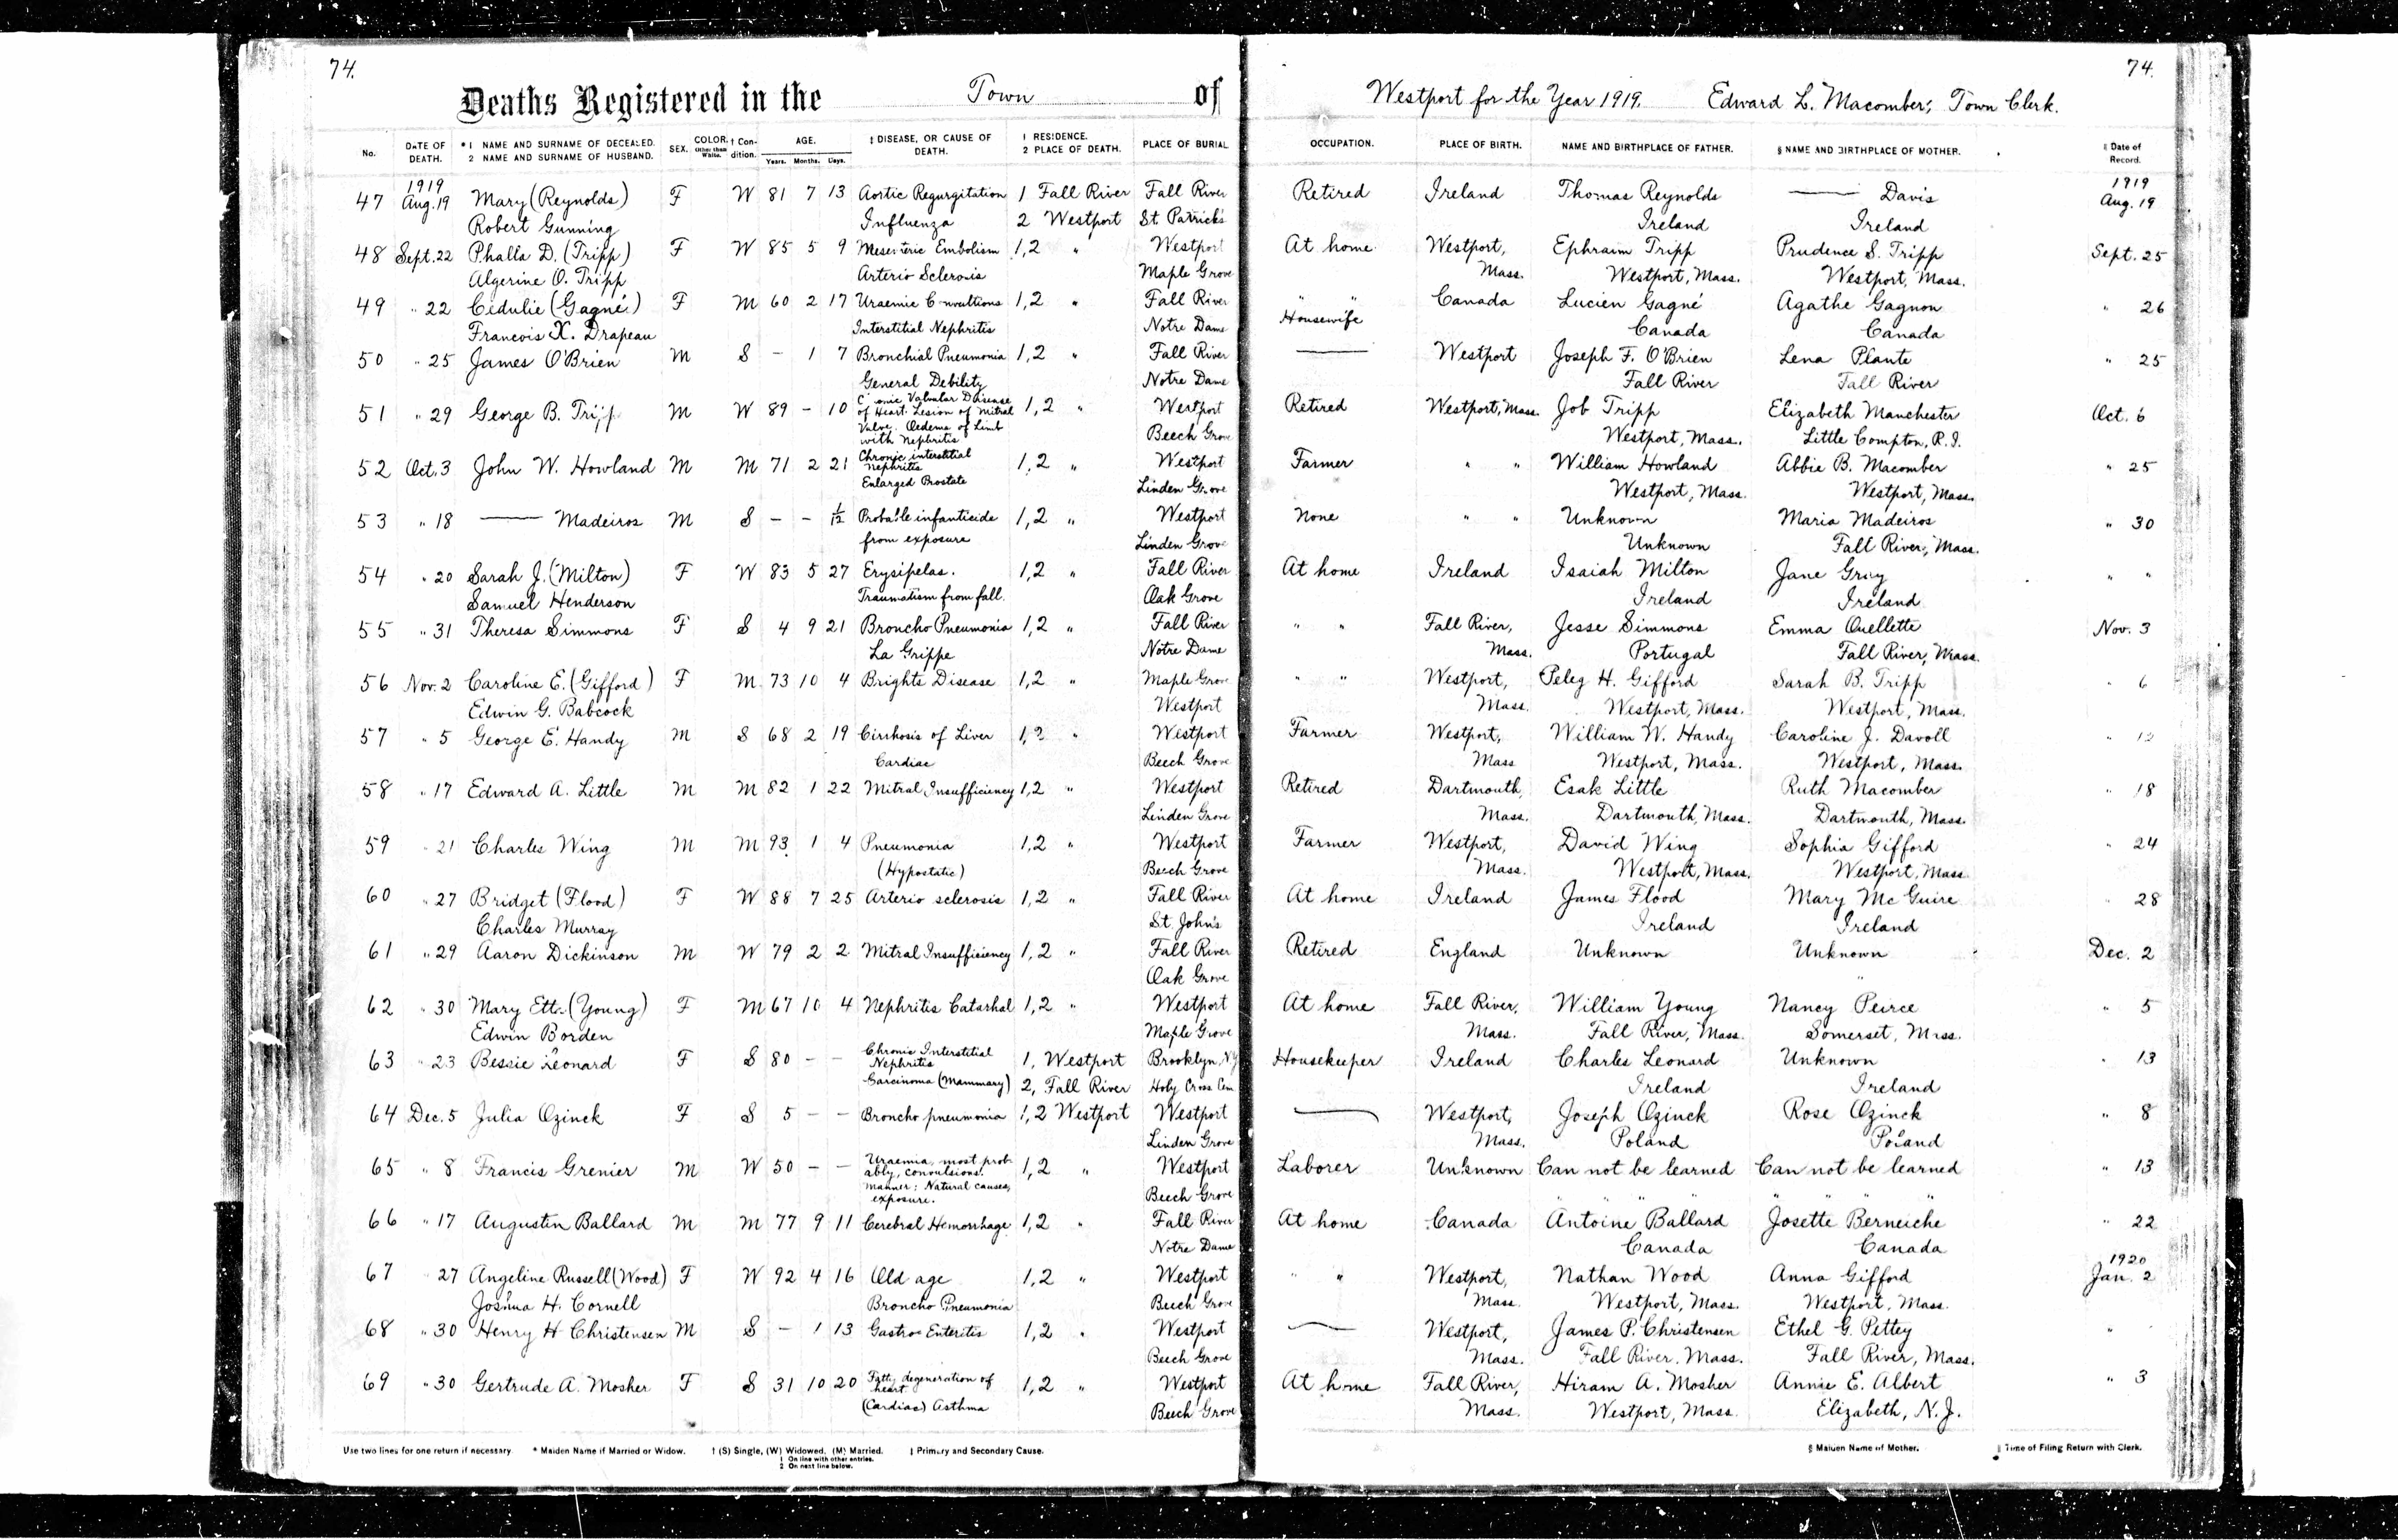 74. 74.
Deaths Registered in the Town of Westport for the Year 1919. Edward L. Macomber, Town Clerk.
No. DATE OF DEATH. *1 NAME AND SURNAME OF DECEASED. 2 NAME AND SURNAME OF HUSBAND. SEX. COLOR. Other than White. † Condition. AGE. Years. Months. Days. ‡ DISEASE, OR CAUSE OF DEATH. 1 RESIDENCE. 2 PLACE OF DEATH. PLACE OF BURIAL OCCUPATION. PLACE OF BIRTH. NAME AND BIRTHPLACE OF FATHER. § NAME AND BIRTHPLACE OF MOTHER. ‖ Date of Record.
1919 1919
47 Aug. 19 Mary (Reynolds) F W 81 7 13 Aortic Regurgitation 1 Fall River Fall River Retired Ireland Thomas Reynolds —— Davis Aug. 19
Robert Gunning Influenza 2 Westport St. Patrick's Ireland Ireland
48 Sept. 22 Phalla D. (Tripp) F W 85 5 9 Mesenteric Embolism 1,2 " Westport At home Westport, Ephraim Tripp Prudence S. Tripp Sept. 25
Algerine O. Tripp Arterio Sclerosis Maple Grove Mass. Westport, Mass. Westport, Mass.
49 " 22 Cedulie (Gagné) F M 60 2 17 Uraemic Convultions 1,2 " Fall River " " Canada Lucien Gagné Agathe Gagnon " 26
Francois X. Drapeau Interstitial Nephritis Notre Dame Housewife Canada Canada
50 " 25 James O'Brien M S – 1 7 Bronchial Pneumonia 1,2 " Fall River —— Westport Joseph F. O'Brien Lena Plante " 25
General Debility Notre Dame Fall River Fall River
51 " 29 George B. Tripp M W 89 – 10 Chronic Valvular Disease of Heart. Lesion of Mitral 1,2 " Westport Retired Westport, Mass. Job Tripp Elizabeth Manchester Oct. 6
Valve. Oedema of Limb with Nephritis Beech Grove Westport, Mass. Little Compton, R.I.
52 Oct. 3 John W. Howland M M 71 2 21 Chronic interstitial Nephritis 1,2 " Westport Farmer " " William Howland Abbie B. Macomber " 25
Enlarged Prostate Linden Grove Westport, Mass. Westport, Mass.
53 " 18 —— Madeiros M S – – 1/12 Probable infanticide 1,2 " Westport None " " Unknown Maria Madeiros " 30
from exposure Linden Grove Unknown Fall River, Mass.
54 " 20 Sarah J. (Milton) F W 83 5 27 Erysipelas. 1,2 " Fall River At home Ireland Isaiah Milton Jane Gray " "
Samuel Henderson Traumatism from fall. Oak Grove Ireland Ireland
55 " 31 Theresa Simmons F S 4 9 21 Broncho Pneumonia 1,2 " Fall River " " Fall River, Jesse Simmons Emma Ouellette Nov. 3
La Grippe Notre Dame Mass. Portugal Fall River, Mass.
56 Nov. 2 Caroline E. (Gifford) F M 73 10 4 Brights Disease 1,2 " Maple Grove " " Westport, Peleg H. Gifford Sarah B. Tripp " 6
Edwin G. Babcock Westport Mass. Westport, Mass. Westport, Mass.
57 " 5 George E. Handy M S 68 2 19 Cirrhosis of Liver 1,2 " Westport Farmer Westport, William W. Handy Caroline J. Davoll "
Cardiac Beech Grove Mass Westport, Mass. Westport, Mass.
58 " 17 Edward A. Little M M 82 1 22 Mitral Insufficiency 1,2 " Westport Retired Dartmouth, Esak Little Ruth Macomber " 18
Linden Grove Mass. Dartmouth, Mass. Dartmouth, Mass.
59 " 21 Charles Wing M M 93 1 4 Pneumonia 1,2 " Westport Farmer Westport, David Wing Sophia Gifford " 24
(Hypostatic) Beech Grove Mass. Westport, Mass. Westport, Mass.
60 " 27 Bridget (Flood) F W 88 7 25 Arterio sclerosis 1,2 " Fall River At home Ireland James Flood Mary Mc Guire " 28
Charles Murray St. John's Ireland Ireland
61 " 29 Aaron Dickinson M W 79 2 2 Mitral Insufficiency 1,2 " Fall River Retired England Unknown Unknown Dec. 2
Oak Grove "
62 " 30 Mary Etta (Young) F M 67 10 4 Nephritis Catarhal 1,2 " Westport At home Fall River, William Young Nancy Peirce " 5
Edwin Borden Maple Grove Mass. Fall River, Mass. Somerset, Mass.
63 " 23 Bessie Leonard F S 80 – – Chronic Interstitial Nephritis 1, Westport Brooklyn, N.Y. Housekeeper Ireland Charles Leonard Unknown " 13
Carcinoma (Mammary) 2, Fall River Holy Cross Cem Ireland Ireland
64 Dec. 5 Julia Ozinck F S 5 – – Broncho pneumonia 1,2 Westport Westport —— Westport, Joseph Ozinck Rose Ozinck " 8
Linden Grove Mass. Poland Poland
65 " 8 Francis Grenier M W 50 – – Uraemia, most probably, convulsions. 1,2 " Westport Laborer Unknown Can not be learned Can not be learned " 13
Manner: Natural causes, exposure. Beech Grove " " " "
66 " 17 Augustin Ballard M M 77 9 11 Cerebral Hemorrhage 1,2 " Fall River At home Canada Antoine Ballard Josette Berneiche " 22
Notre Dame Canada Canada 1920
67 " 27 Angeline Russell (Wood) F W 92 4 16 Old age 1,2 " Westport " " Westport, Nathan Wood Anna Gifford Jan. 2
Joshua H. Cornell Broncho Pneumonia Beech Grove Mass. Westport, Mass. Westport, Mass.
68 " 30 Henry H Christensen M S – 1 13 Gastroe Enteritis 1,2 " Westport —— Westport, James P. Christensen Ethel G. Pettey " "
Beech Grove Mass. Fall River, Mass. Fall River, Mass.
69 " 30 Gertrude A. Mosher F S 31 10 20 Fatty degeneration of heart 1,2 " Westport At home Fall River, Hiram A. Mosher Annie E. Albert " 3
(Cardiac) Asthma Beech Grove Mass. Westport, Mass. Elizabeth, N.J.
Use two lines for one return if necessary. * Maiden Name if Married or Widow. † (S) Single, (W) Widowed, (M) Married. ‡ Primary and Secondary Cause. § Maiden Name of Mother. ‖ Time of Filing Return with Clerk.
1 On line with other entries.
2 On next line below.